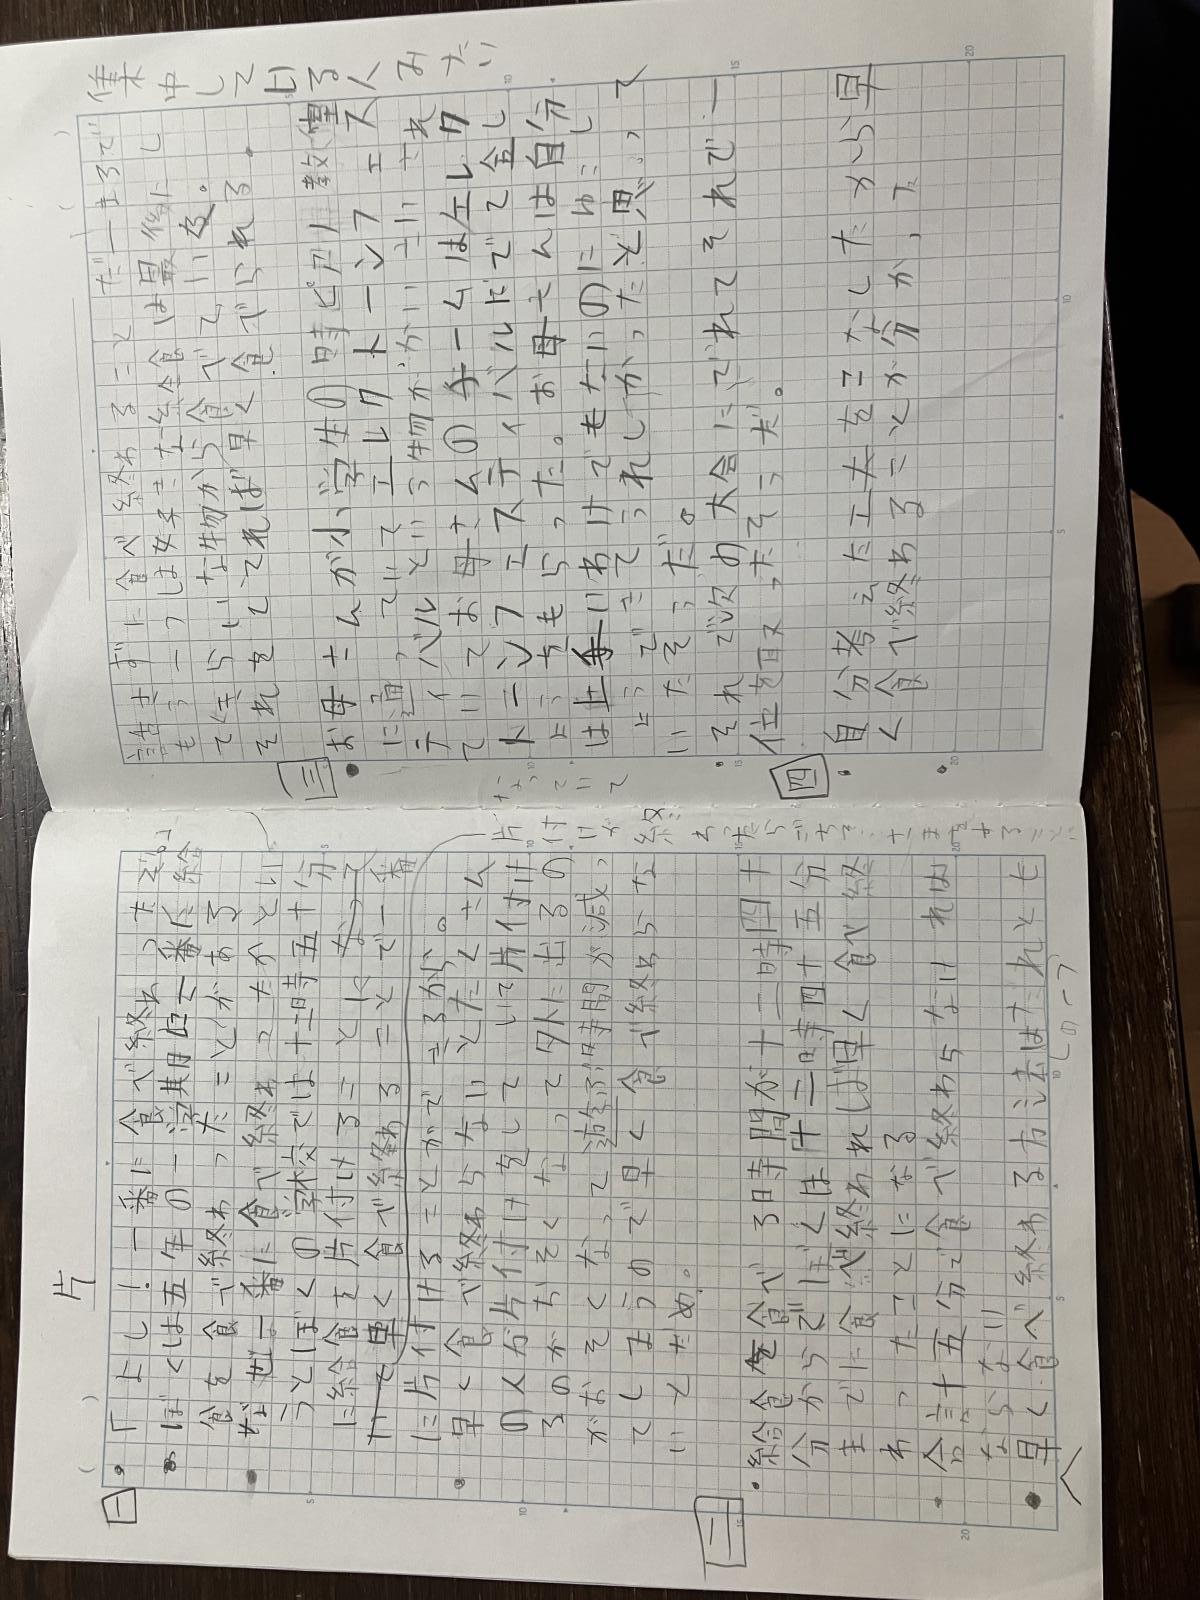 一
「よし！一番に食べ終わったぞ。」
ぼくは五年の一学期に一番に給
食を食べ終わったことがある
なぜ一番に食べ終わったかとい
うとぼくの学校では十二時五十分
に給食を片付けることになって
いて早く食べ終わることで一番
に片付けることができるから。
早く食べ終わらないとたくさん
の人が片付けをしていて片付け
るのがおそくなって外に出るの
がおそくなって遊ぶ時間が減っ
てしまうので早く食べ終わらな
いとだめだ。
片付けが終わったらごちそうさまをすることになっていて
二
給食を食べる時間が十二時四十
分からでぼくは十二時四十五分
までに食べ終われば早く食べ終
わったことになる
合計十五分で食べ終わらなければ
ならない
早く食べ終わる方法はたれとも
(の一つ)
話さずに食べ終わること
だーまるで
集中している人みたい
もう一つは好きな給食は最後にし
てきらいな物から食べている。
それをしてれば早く食べられる。
三
お母さんが小学生の時ピアノ教室
に通っていてエレクトーンフェス
ティバルという物がかいさいされ
ていてお母さんのチームはエレク
トーンフェスティバルにでて金し
ょうをもらった。お母さんは自分
は上手いわけでもないのにゆうし
ょうできてうれしかったと思って
いたそうだ。
それで次の大会にでれてそれで一
位を取ったそうだ。
四
自分考えた工夫をこなしたから早
く食べ終わることが分かった